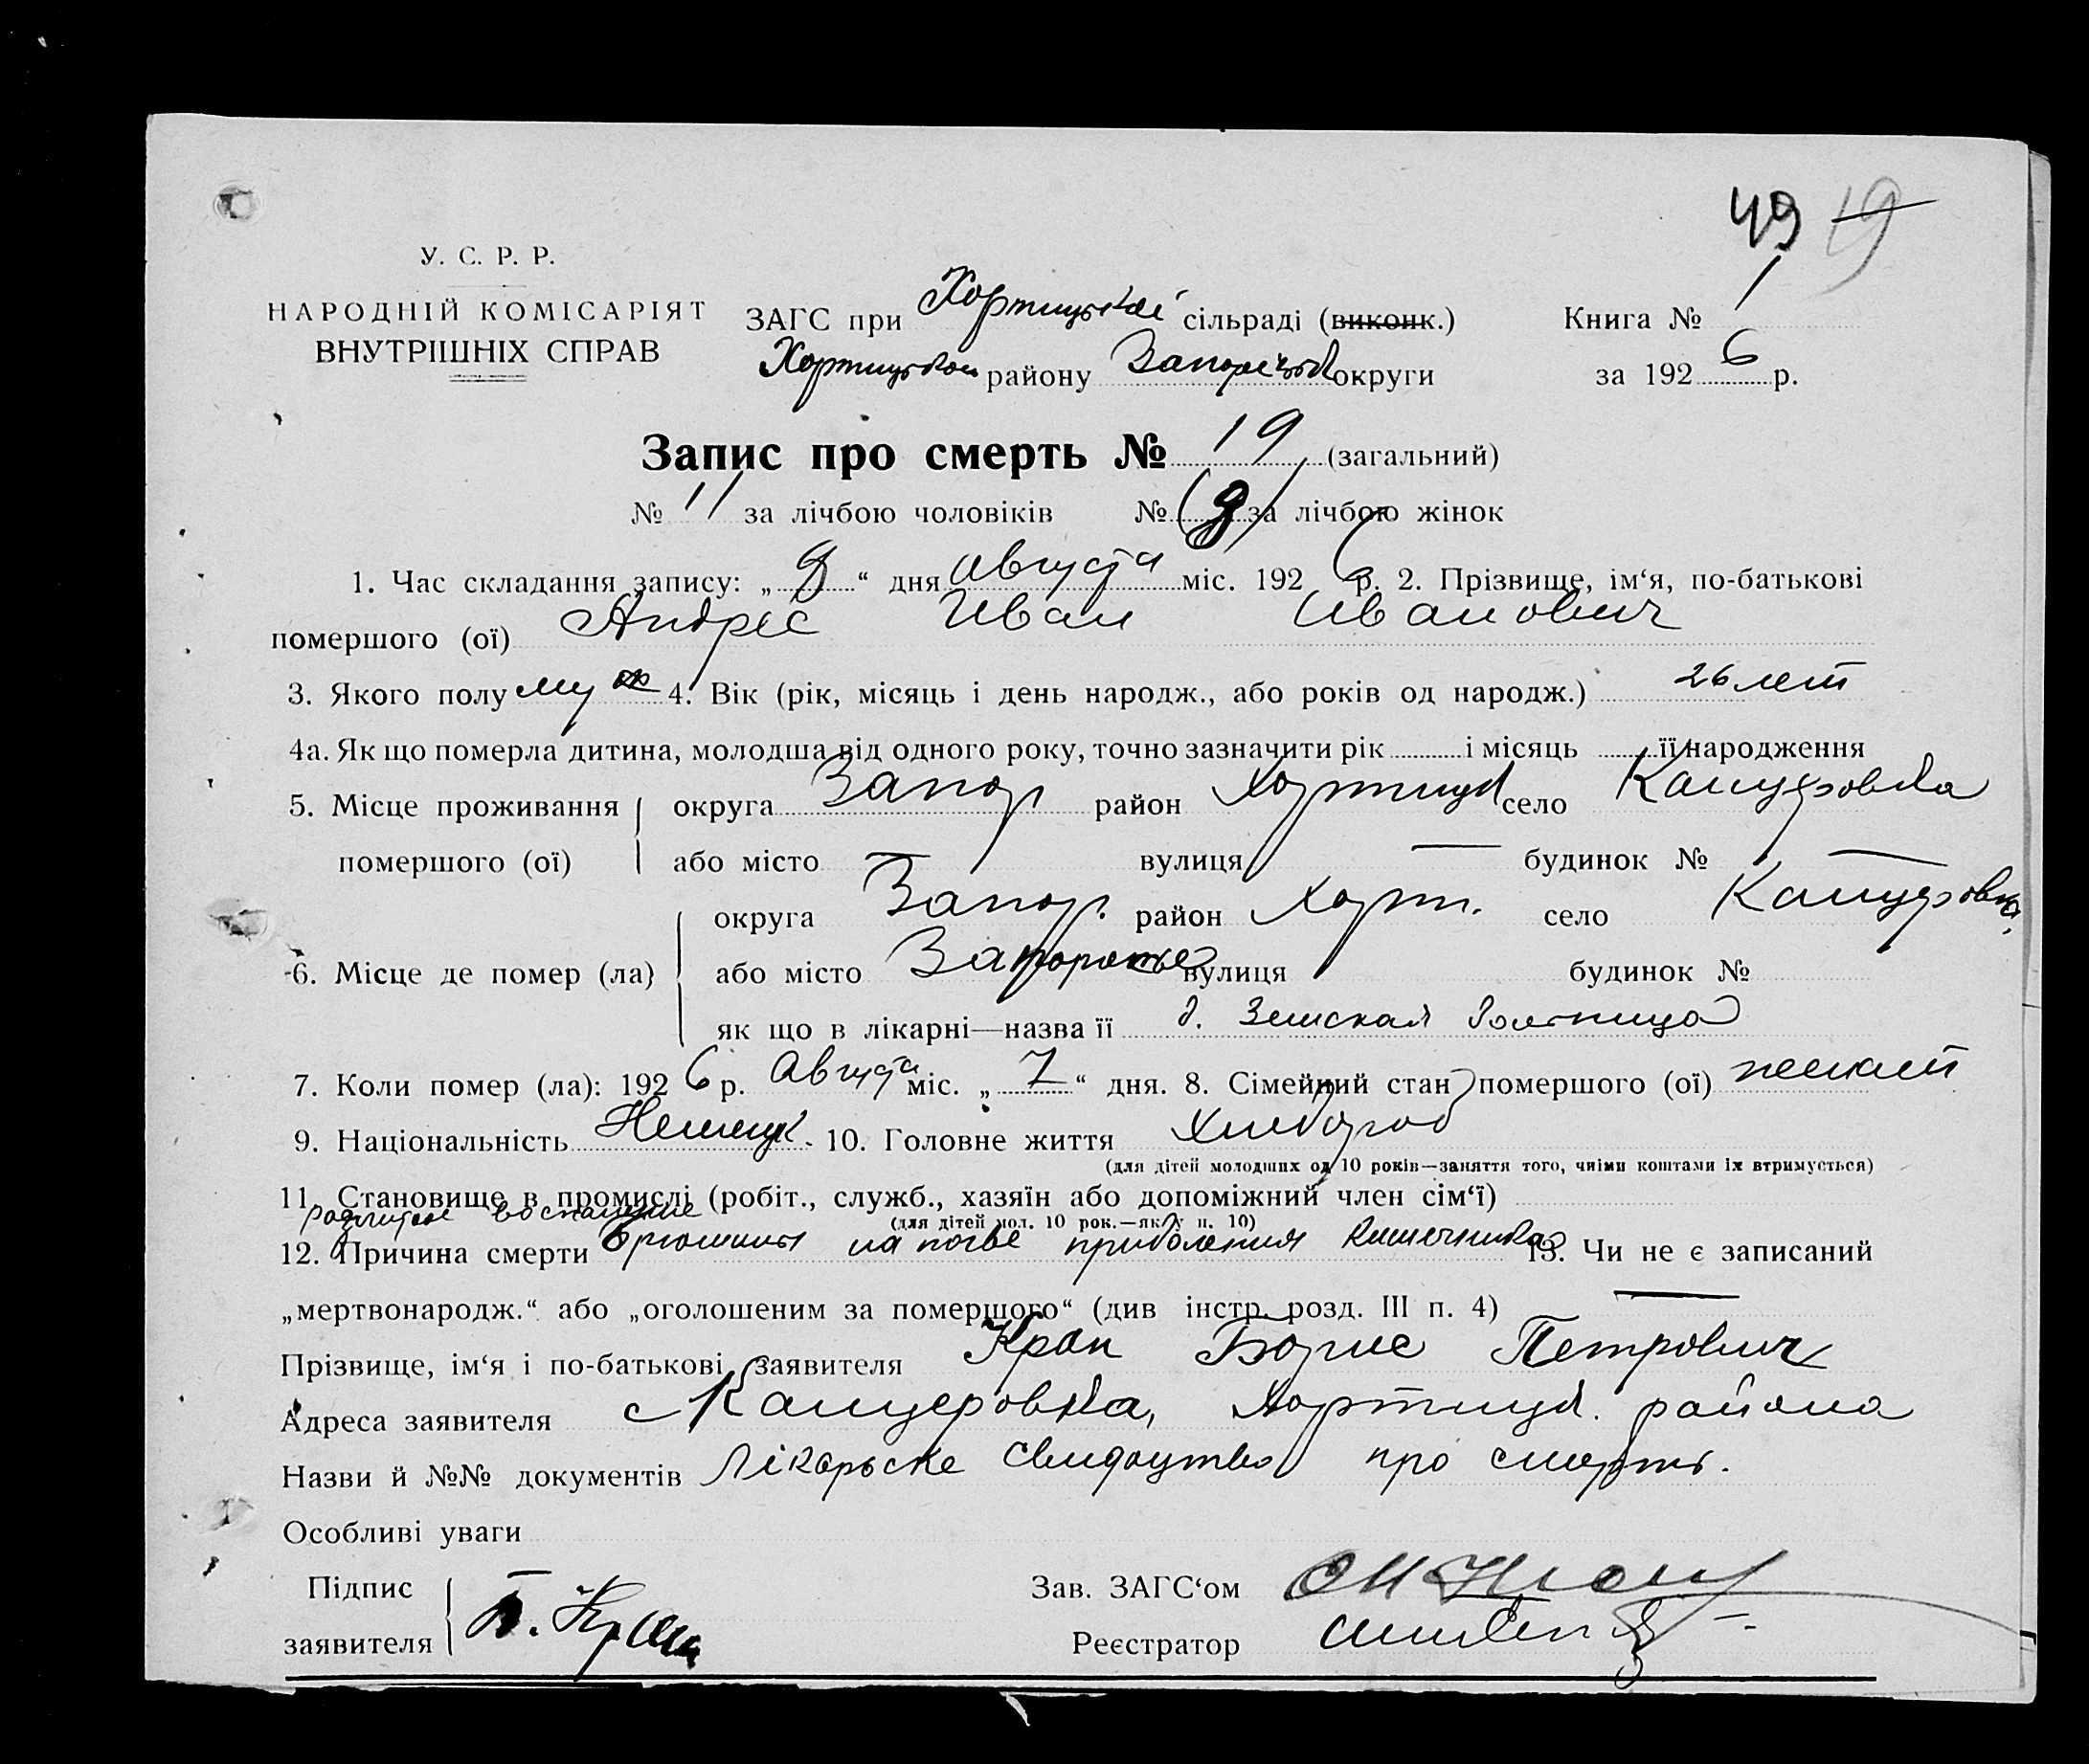 49 19
У. С. Р. Р.
НАРОДНІЙ КОМІСАРІЯТ
ВНУТРІШНІХ СПРАВ
ЗАГС при Хортицькій сільраді (виконк.) Книга № 1
Хортицьком району Запорізьк округи за 1926 р.
Запис про смерть № 19 (загальний)
№ 11 за лічбою чоловіків № (8) за лічбою жінок
1. Час складання запису: „ 9 “ дня Августа міс. 1926 р. 2. Прізвище, ім‘я, по-батькові
помершого (ої) Андрес Иван Иванович
3. Якого полу муж 4. Вік (рік, місяць і день народж., або років од народж.) 26 лет
4а. Як що померла дитина, молодша від одного року, точно зазначити рік і місяць її народження
5. Місце проживання округа Запор район Хортицк село Канцеровка
помершого (ої) або місто — вулиця — будинок № —
округа Запор. район Хорт. село Канцеровка
6. Місце де помер (ла) або місто Запорожье вулиця будинок №
як що в лікарні—назва її б. Земская больница
7. Коли помер (ла): 1926 р. Августа міс. „ 7 “ дня. 8. Сімейний стан помершого (ої) женат
9. Національність Немец. 10. Головне життя Хлебороб
(для дітей молодших од 10 років—заняття того, чиїми коштами їх втримується)
11. Становище в промислі (робіт., служб., хазяїн або допоміжний член сім‘ї)
(для дітей мол. 10 рок.—як у п. 10)
разлитое воспаление
12. Причина смерти брюшины на почве кишечника 13. Чи не є записаний
„мертвонародж.“ або „оголошеним за померщого“ (див інстр. розд. III п. 4) —
Прізвище, ім‘я і по-батькові заявителя Кран Борис Петрович
Адреса заявителя с Канцеровка, Хортицк. района
Назви й №№ документів Лікарьске свидоцтво про смерть.
Особливі уваги
Підпис Зав. ЗАГС‘ом
заявителя Б. Кран Реєстратор